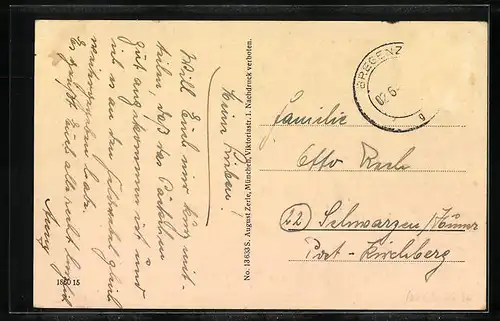 Meine Lieben!
Will Euch nur kurz mit-
teilen, daß das Päckchen
gut angekommen ist und
ich es an den
weitergegeben habe.
Es grüßt Euch alle recht herzlich
No. 13633 S. August Zerle, München, Viktoriastr. 1. Nachdruck verboten.
1540 15
BREGENZ
Familie
Otto
Schwarzen /
Post - Kirchberg